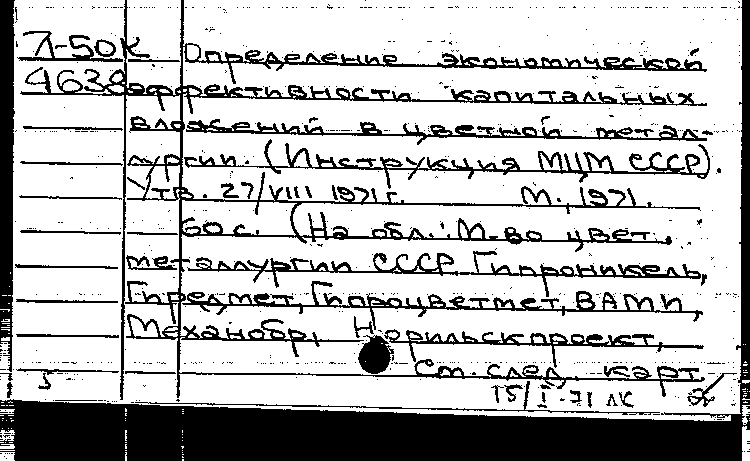 Л-50К Определение экономической
4638 эффективности капитальных
вложений в цветной метал-
лургии. (Инструкция МЦМ СССР).
Утв. 27/VIII 1971 г. М., 1971.
60 с. (На обл.: М-во цвет.
металлургии СССР. Гипроникель,
Гиредмет, Гипроцветмет, ВАМИ,
Механобр, Норильскпроект,
См. след. карт.
5
15/I-71 лк